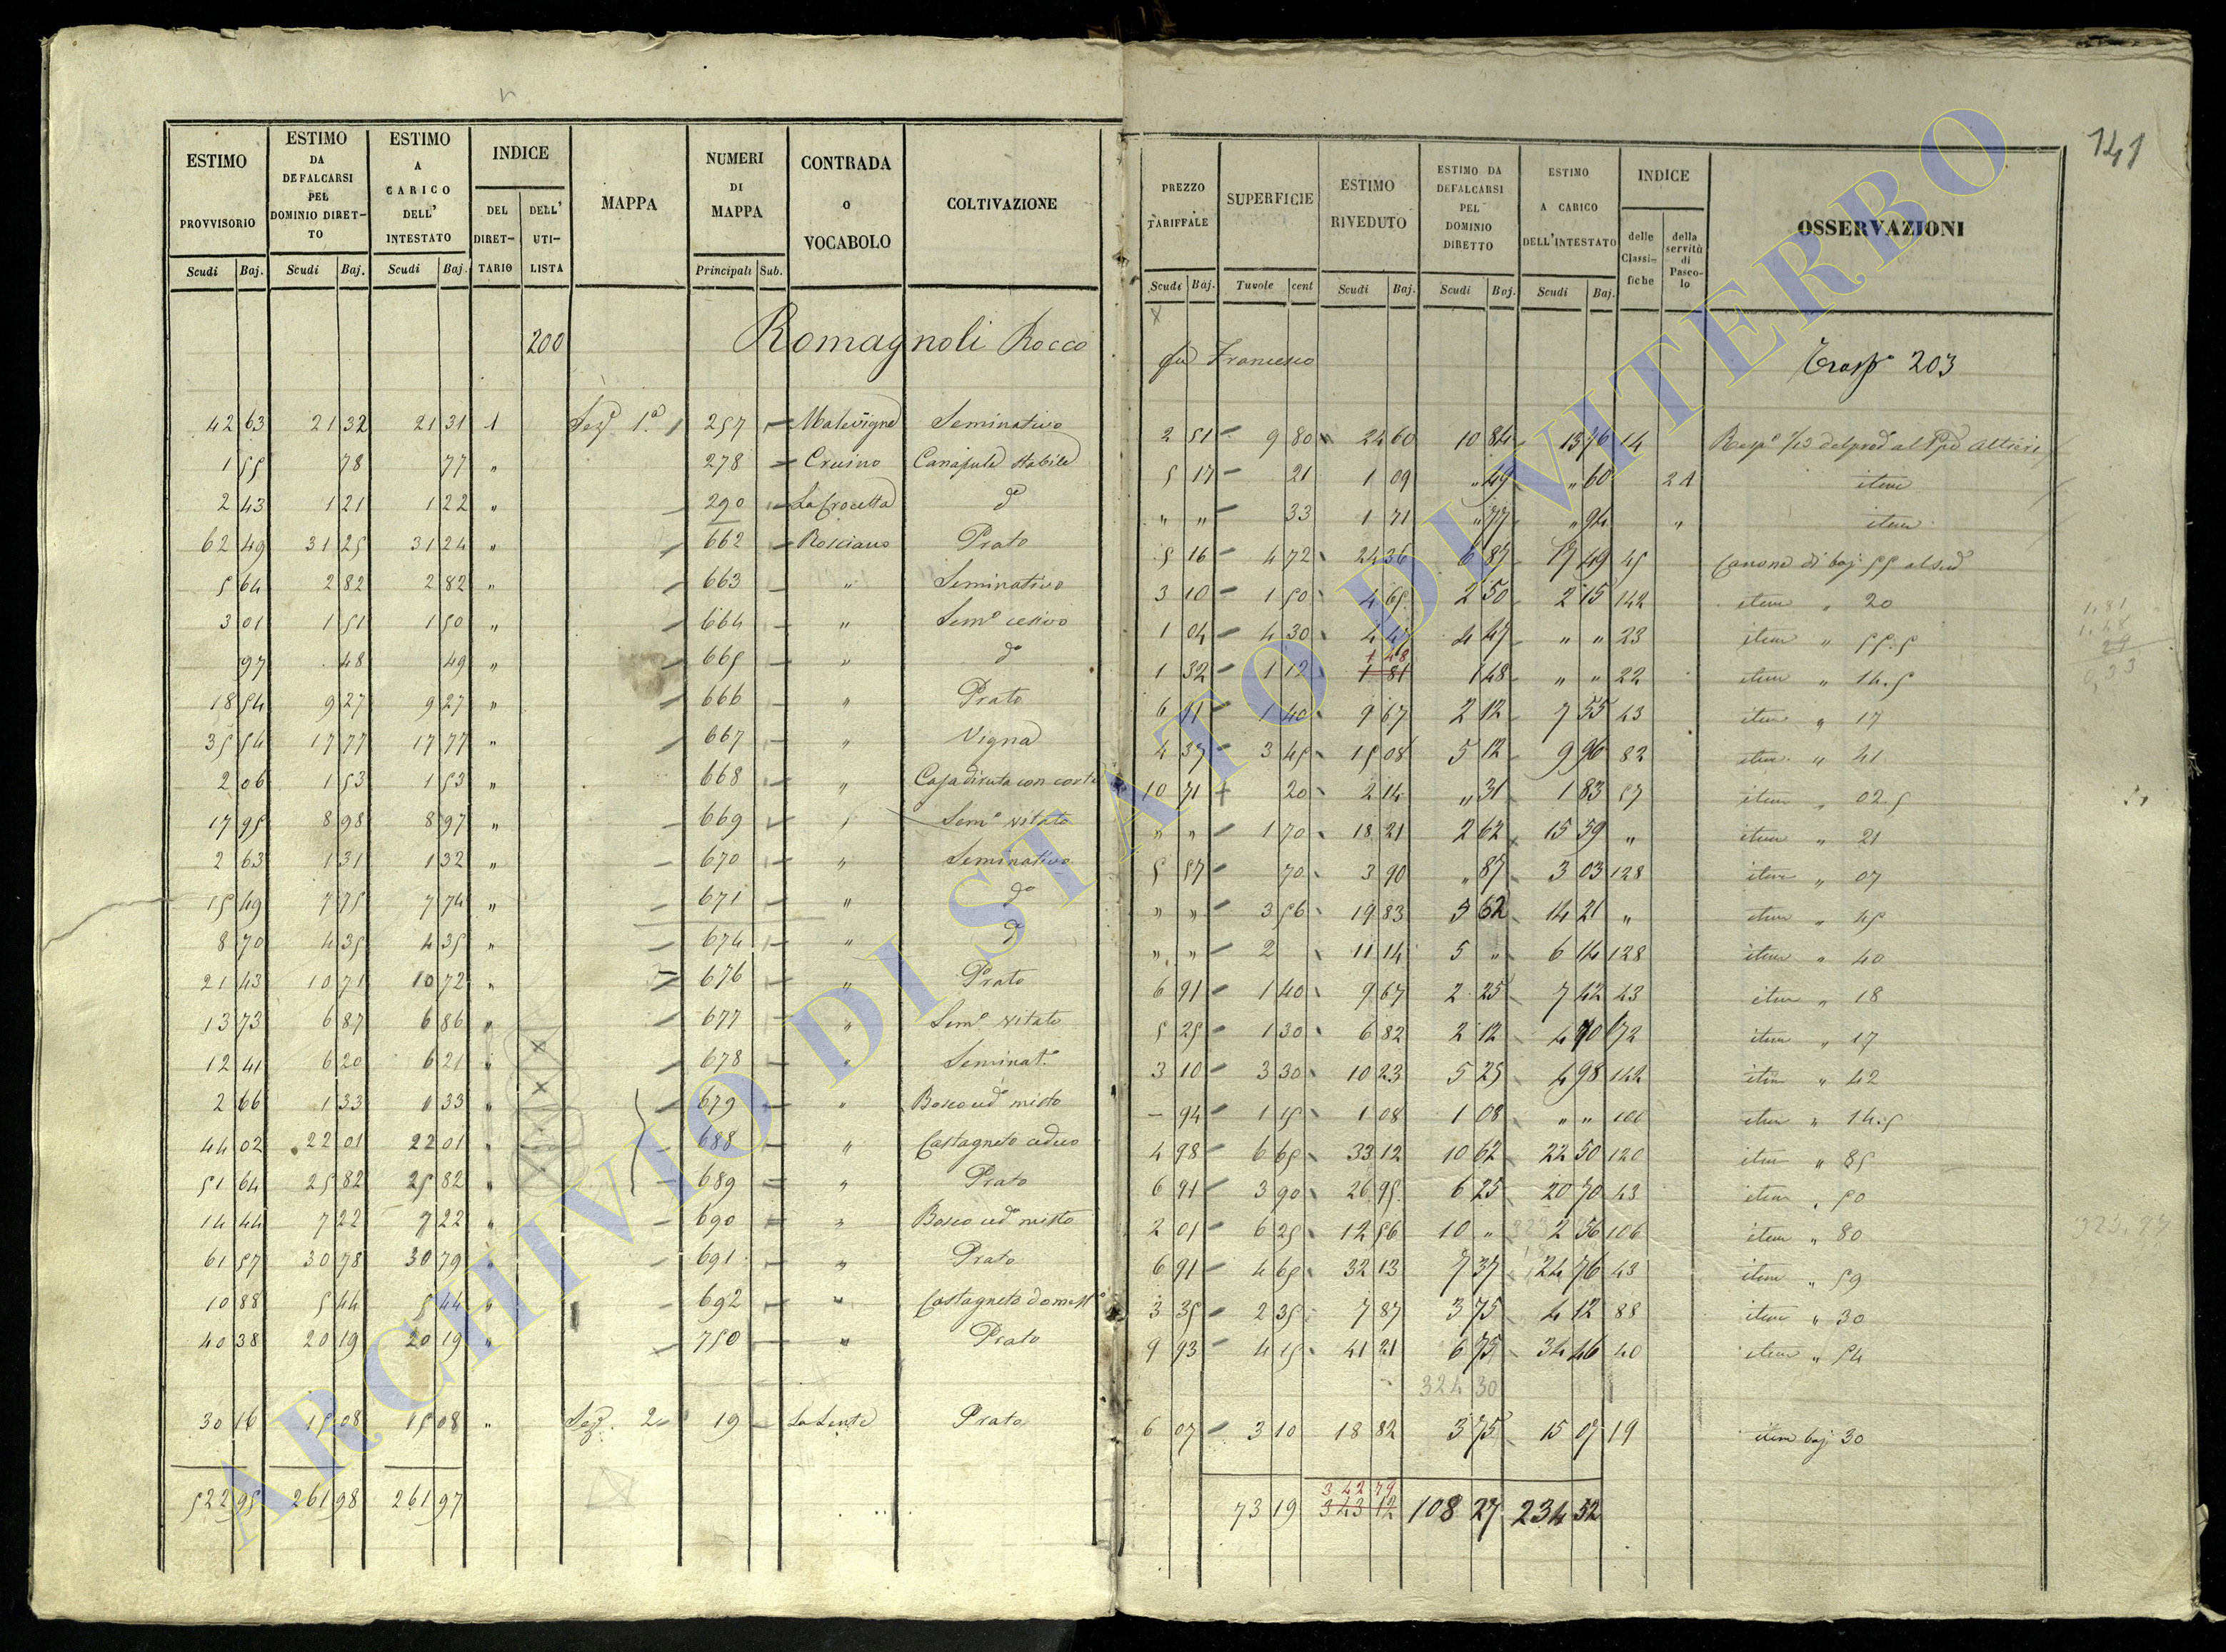 141
ESTIMO PROVVISORIO Scudi Baj. | ESTIMO DA DEFALCARSI PEL DOMINIO DIRETTO Scudi Baj. | ESTIMO A CARICO DELL' INTESTATO Scudi Baj. | INDICE DEL DIRETTARIO DELL' UTILISTA | MAPPA | NUMERI DI MAPPA Principali Sub. | CONTRADA o VOCABOLO | COLTIVAZIONE | PREZZO TARIFFALE Scudi Baj. | SUPERFICIE Tavole cent | ESTIMO RIVEDUTO Scudi Baj. | ESTIMO DA DEFALCARSI PEL DOMINIO DIRETTO Scudi Baj. | ESTIMO A CARICO DELL'INTESTATO Scudi Baj. | INDICE delle Classifiche della servitù di Pascolo | OSSERVAZIONI
200 Romagnoli Rocco fu Francesco Trasp.o 203
42 63 | 21 32 | 21 31 | 1 | Sez.e 1.a | 257 | Malevigne | Seminativo | 2 51 | 9 80 | 24 60 | 10 84 | 13 76 | 14 | al Altieri
1 55 | 78 | 77 | " | 278 | Crusino | Canapule stabile | 5 17 | 21 | 1 09 | " 49 | " 60 | 21 | item
2 43 | 1 21 | 1 22 | " | 290 | La Crocetta | d.o | " " | 33 | 1 71 | " 77 | " 94 | " | item
62 49 | 31 25 | 31 24 | " | 662 | Rosciano | Prato | 5 16 | 4 72 | 24 36 | 6 87 | 17 49 | 45 | Canone di baj 55 al sud.o
5 64 | 2 82 | 2 82 | " | 663 | " | Seminativo | 3 10 | 1 50 | 4 65 | 2 50 | 2 15 | 142 | item " 20
3 01 | 1 51 | 1 50 | " | 664 | " | Sem.o cesivo | 1 04 | 4 30 | 4 47 | 4 47 | " " | 23 | item " 55.5
97 | 48 | 49 | " | 665 | " | d.o | 1 32 | 1 12 | 1 48 1 81 | 1 48 | " " | 22 | item " 14.5
18 54 | 9 27 | 9 27 | " | 666 | " | Prato | 6 91 | 1 40 | 9 67 | 2 12 | 7 55 | 43 | item " 17
35 54 | 17 77 | 17 77 | " | 667 | " | Vigna | 4 37 | 3 45 | 15 08 | 5 12 | 9 96 | 82 | item " 41
2 06 | 1 53 | 1 53 | " | 668 | " | Casa diruta con corte | 10 71 | 20 | 2 14 | " 31 | 1 83 | 57 | item " 02.5
17 95 | 8 98 | 8 97 | " | 669 | " | Sem.o vitato | " " | 1 70 | 18 21 | 2 62 | 15 59 | " | item " 21
2 63 | 1 31 | 1 32 | " | 670 | " | Seminativo | 5 57 | 70 | 3 90 | " 87 | 3 03 | 128 | item " 07
15 49 | 7 75 | 7 74 | " | 671 | " | d.o | " " | 3 56 | 19 83 | 5 62 | 14 21 | " | item " 45
8 70 | 4 35 | 4 35 | " | 674 | " | d.o | " " | 2 | 11 14 | 5 " | 6 14 | 128 | item " 40
21 43 | 10 71 | 10 72 | " | 676 | " | Prato | 6 91 | 1 40 | 9 67 | 2 25 | 7 42 | 43 | item " 18
13 73 | 6 87 | 6 86 | " | 677 | " | Sem.o vitato | 5 25 | 1 30 | 6 82 | 2 12 | 4 70 | 72 | item " 17
12 41 | 6 20 | 6 21 | " | 678 | " | Seminat.o | 3 10 | 3 30 | 10 23 | 5 25 | 4 98 | 142 | item " 42
2 66 | 1 33 | 1 33 | " | 679 | " | Bosco ced.o misto | - 94 | 1 15 | 1 08 | 1 08 | " " | item " 14.5
44 02 | 22 01 | 22 01 | " | 688 | " | Castagneto ceduo | 4 98 | 6 65 | 33 12 | 10 62 | 22 50 | 120 | item " 85
51 64 | 25 82 | 25 82 | " | 689 | " | Prato | 6 91 | 3 90 | 26 95 | 6 25 | 20 70 | 43 | item " 50
14 44 | 7 22 | 7 22 | " | 690 | " | Bosco ced.o misto | 2 01 | 6 25 | 12 56 | 10 " | 2 56 | 106 | item " 80
61 57 | 30 78 | 30 79 | " | 691 | " | Prato | 6 91 | 4 65 | 32 13 | 7 37 | 24 76 | 43 | item " 59
10 88 | 5 44 | 5 44 | " | 692 | " | Castagneto domest.o | 3 35 | 2 35 | 7 87 | 3 75 | 4 12 | 88 | item " 30
40 38 | 20 19 | 20 19 | " | 750 | " | Prato | 9 93 | 4 15 | 41 21 | 6 75 | 34 46 | 40 | item " 54
324 30
30 16 | 15 08 | 15 08 | " | Sez. 2 | 19 | La Lente | Prato | 6 07 | 3 10 | 18 82 | 3 75 | 15 07 | 19 | item baj 30
522 95 | 261 98 | 261 97 | 73 19 | 342 79 343 12 | 108 27 | 234 52
ARCHIVIO DI STATO DI VITERBO